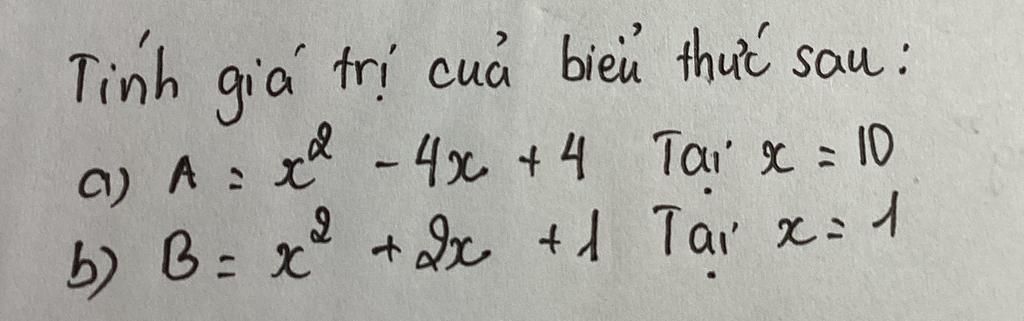 Tính giá trị của biểu thức sau:
a) A = x² - 4x + 4 Tại x = 10
b) B = x² + 2x + 1 Tại x = 1